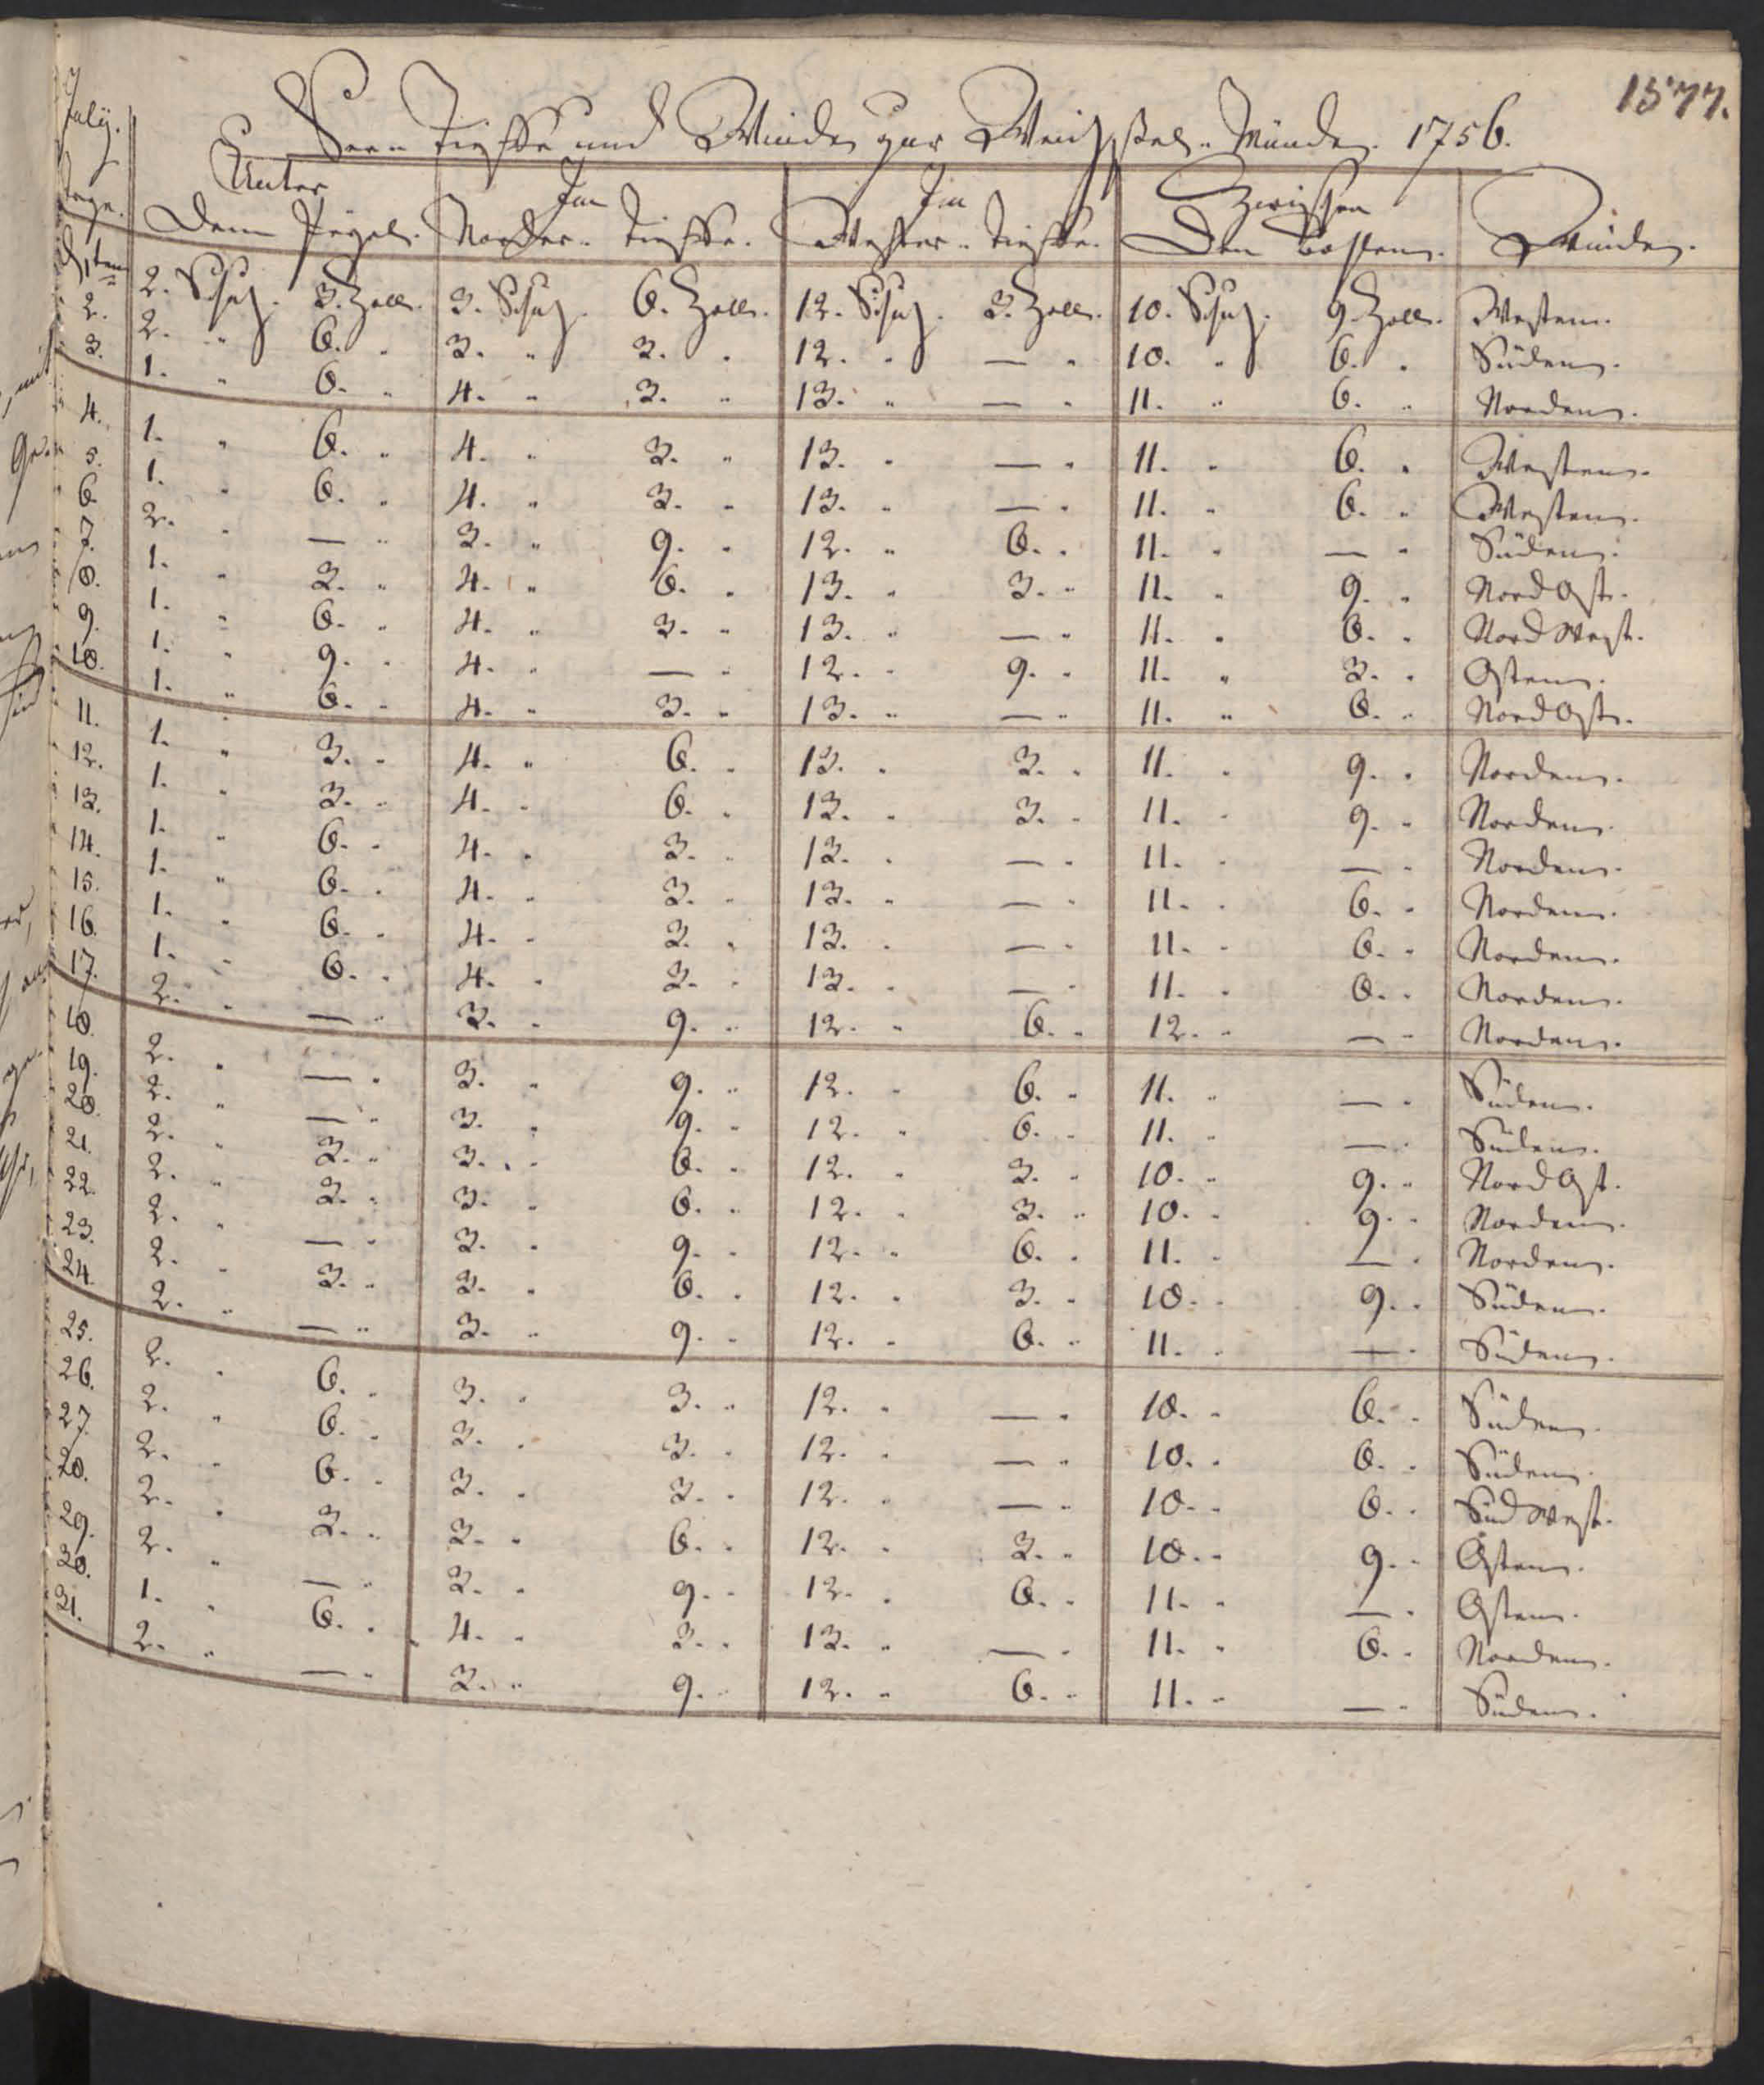 1577.
July. See- Tieffe und Winde zur Weichsel-Münde. 1756.
Tage. Unter Dem Pegel. Im Norder-Tieffe. Im Wester-Tieffe. Zwischen Den Winden.
d 1ten 2. Schuh. 3. Zoll. 3. Schuh. 6. Zoll. 12. Schuh. 3. Zoll. 10. Schuh. 9. Zoll. Westen.
2. 2. " 6. " 3. " 3. " 12. " — " 10. " 6. " Süden.
3. 1. " 6. " 4. " 3. " 13. " — " 11. " 6. " Norden.
4. 1. " 6. " 4. " 3. " 13. " — " 11. " 6. " Westen.
5. 1. " 6. " 4. " 3. " 13. " — " 11. " 6. " Westen.
6. 2. " — " 3. " 9. " 12. " 6. " 11. " — " Süden.
7. 1. " 3. " 4. " 6. " 13. " 3. " 11. " 9. " Nord Ost.
8. 1. " 6. " 4. " 3. " 13. " — " 11. " 6. " Nord West.
9. 1. " 9. " 4. " — " 12. " 9. " 11. " 3. " Osten.
10. 1. " 6. " 4. " 3. " 13. " — " 11. " 6. " Nord Ost.
11. 1. " 3. " 4. " 6. " 13. " 3. " 11. " 9. " Norden.
12. 1. " 3. " 4. " 6. " 13. " 3. " 11. " 9. " Norden.
13. 1. " 6. " 4. " 3. " 13. " — " 11. " — " Norden.
14. 1. " 6. " 4. " 3. " 13. " — " 11. " 6. " Norden.
15. 1. " 6. " 4. " 3. " 13. " — " 11. " 6. " Norden.
16. 1. " 6. " 4. " 3. " 13. " — " 11. " 6. " Norden.
17. 2. " — " 3. " 9. " 12. " 6. " 12. " — " Norden.
18. 2. " — " 3. " 9. " 12. " 6. " 11. " — " Süden.
19. 2. " — " 3. " 9. " 12. " 6. " 11. " — " Süden.
20. 2. " 3. " 3. " 6. " 12. " 3. " 10. " 9. " Nord Ost.
21. 2. " 3. " 3. " 6. " 12. " 3. " 10. " 9. " Norden.
22. 2. " — " 3. " 9. " 12. " 6. " 11. " — " Norden.
23. 2. " 3. " 3. " 6. " 12. " 3. " 10. " 9. " Süden.
24. 2. " — " 3. " 9. " 12. " 6. " 11. " — " Süden.
25. 2. " 6. " 3. " 3. " 12. " — " 10. " 6. " Süden.
26. 2. " 6. " 3. " 3. " 12. " — " 10. " 6. " Süden.
27. 2. " 6. " 3. " 3. " 12. " — " 10. " 6. " Süd West.
28. 2. " 3. " 3. " 6. " 12. " 3. " 10. " 9. " Osten.
29. 2. " — " 3. " 9. " 12. " 6. " 11. " — " Osten.
30. 1. " 6. " 4. " 3. " 13. " — " 11. " 6. " Norden.
31. 2. " — " 3. " 9. " 12. " 6. " 11. " — " Süden.